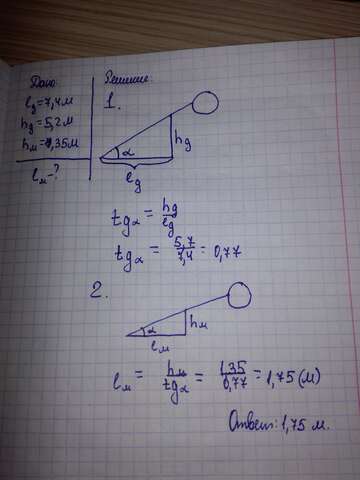 Дано:
lд = 7,4 м
hд = 5,2 м
hм = 1,35 м
lм - ?
Решение:
1.
α
hд
lд
tgα = hд/lд
tgα = 5,7/7,4 = 0,77
2.
α
hм
lм
lм = hм/tgα = 1,35/0,77 = 1,75 (м)
Ответ: 1,75 м.